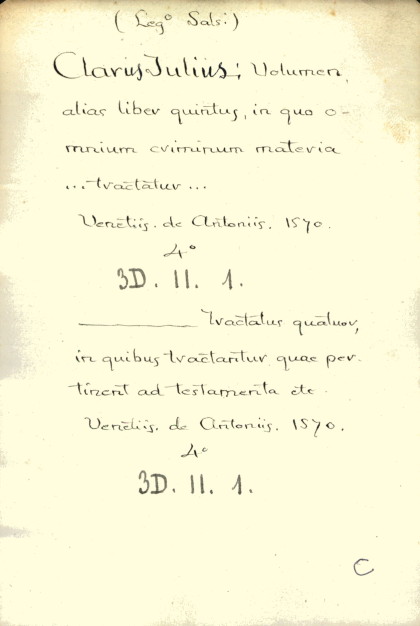 (Leg° Sals:)
Clarus Julius; Volumen,
alias liber quintus, in quo o-
mnium criminum materia
... tractatur ...
Venetiis. de Antoniis. 1570.
4°
3D. II. 1.
_______ Tractatus quatuor,
in quibus tractantur quae per-
tinent ad testamenta etc.
Venetiis. de Antoniis. 1570.
4°
3D. II. 1.
C